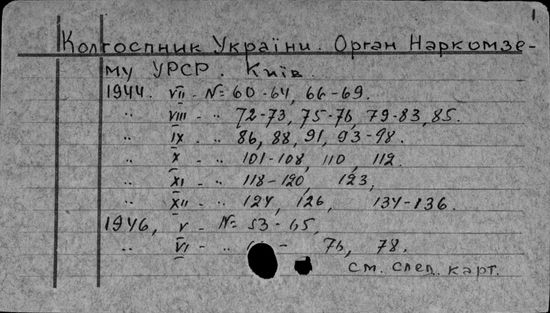 1
Колгоспник України. Орган Наркомзе-
му УРСР. Київ.
1944. VII - № 60-64, 66-69.
" VIII - " 72-73, 75-76, 79-83, 85.
" IX - " 86, 88, 91, 93-98.
" X - " 101-108, 110, 112.
" XI - " 118-120, 123,
" XII - " 124, 126, 134-136.
1946, V - № 53-65,
" VI - " - 76, 78.
см. след. карт.